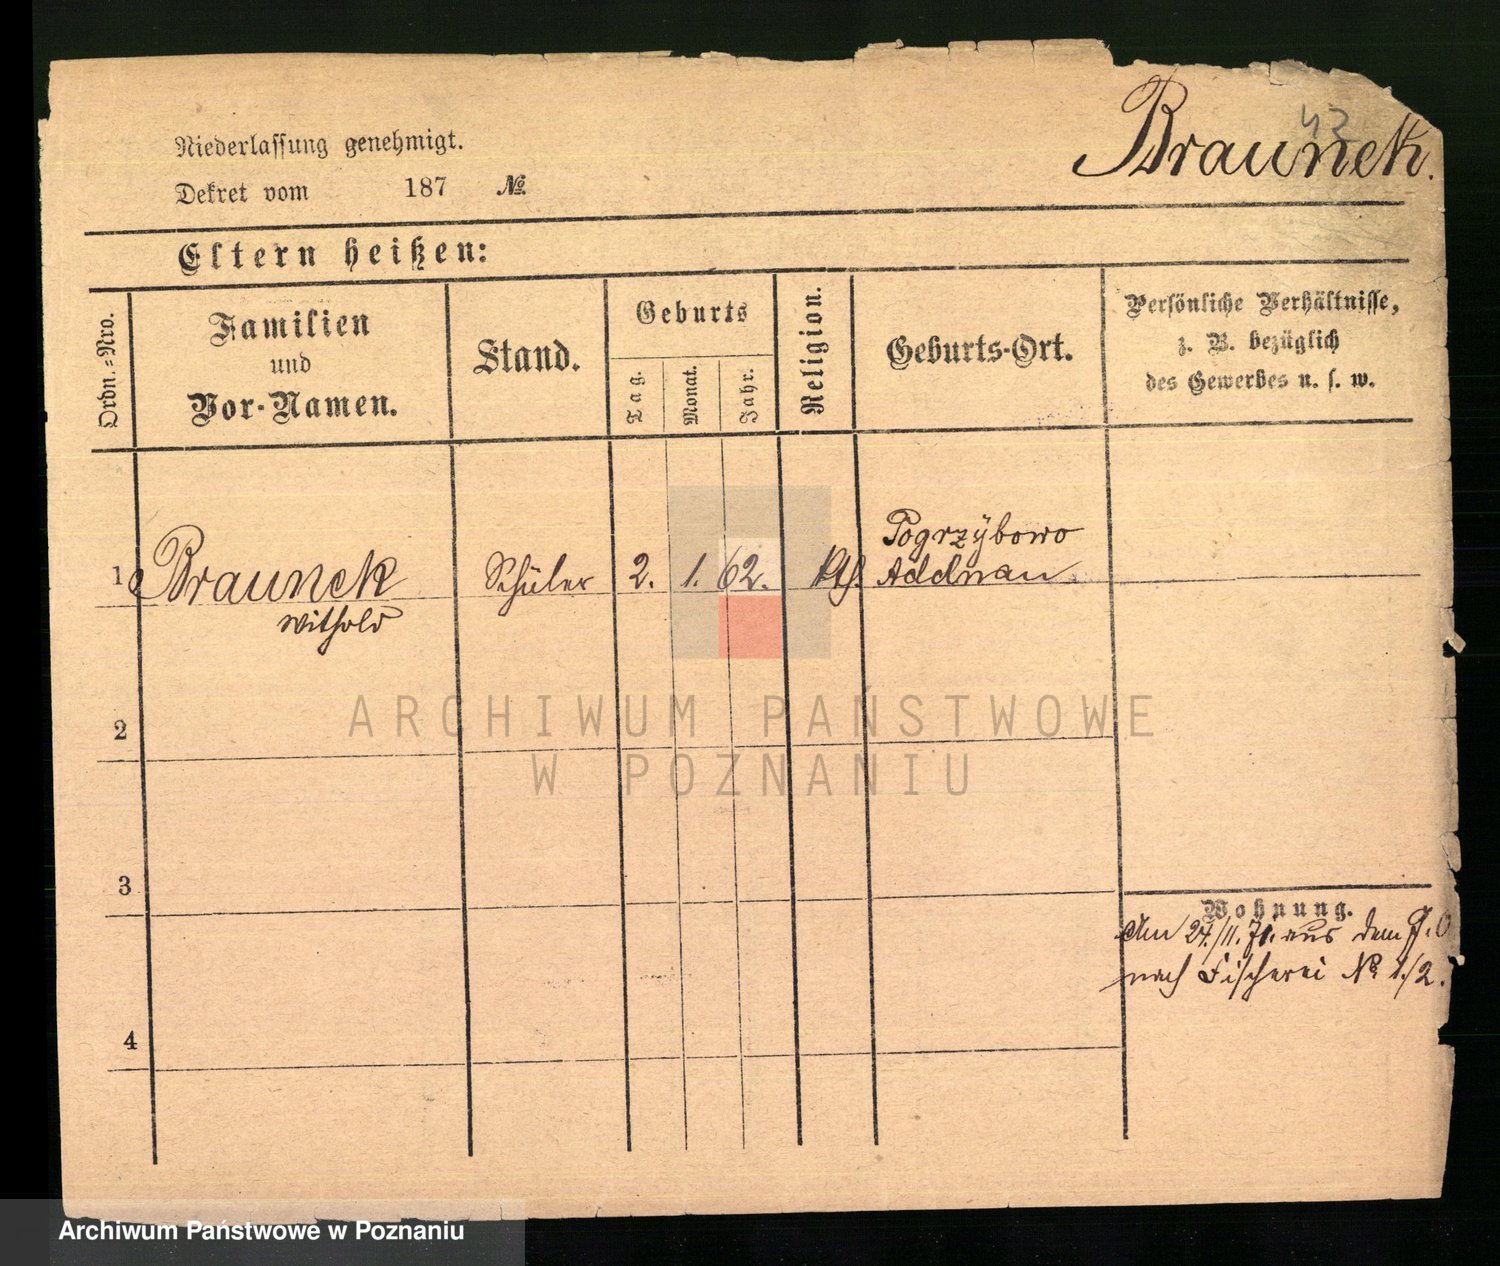 43
Braunek.
Niederlassung genehmigt.
Dekret vom 187 №
Eltern heißen:
Ordn.-Nro.
Familien
und
Vor-Namen.
Stand.
Geburts
Tag.
Monat.
Jahr.
Religion.
Geburts-Ort.
Persönliche Verhältnisse,
z. B. bezüglich
des Gewerbes u. s. w.
Pogrzÿbowo
1 Braunek Schüler 2. 1. 62. kth. Adelnau
Withold
ARCHIWUM PAŃSTWOWE
W POZNANIU
2
3
Wohnung.
Am 24./11.71. aus dem
nach Fischerei № 1./2.
4
Archiwum Państwowe w Poznaniu